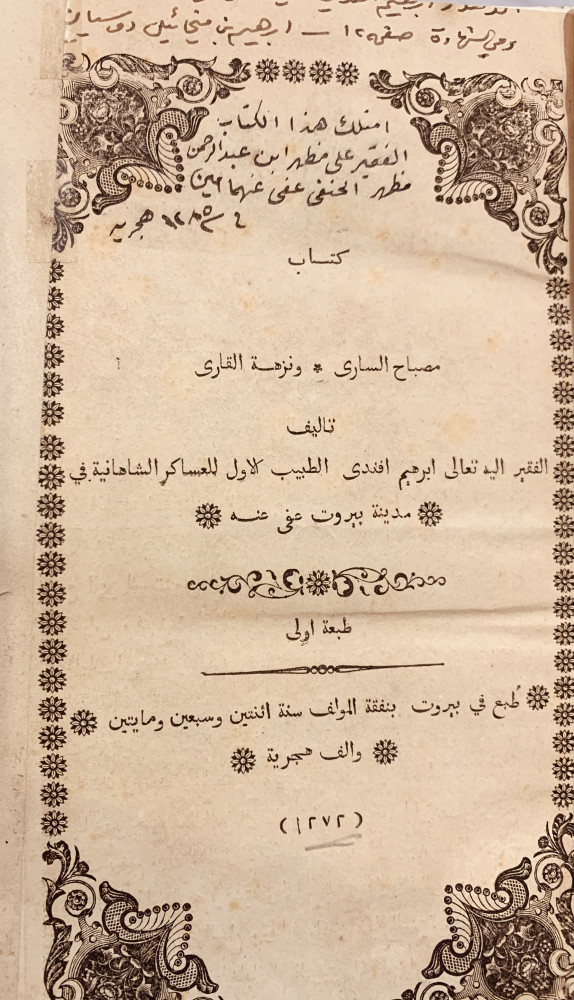 وفي الشهادة صفحه ١٢ — ابرهيم بن ميخائيل
امتلك هذا الكتاب
الفقير على مظهر ابن عبد الرحمن
مظهر الحنفى عفى عنهما امين
١٢٨٥ هجريه
كتاب
مصباح السارى * ونزهة القارى
تاليف
الفقير اليه تعالى ابرهيم افندى الطبيب الاول للعساكر الشاهانية في
مدينة بيروت عفى عنه
طبعة اولى
طُبع في بيروت بنفقة المولف سنة اثنتين وسبعين ومايتين
والف هجرية
(١٢٧٢)